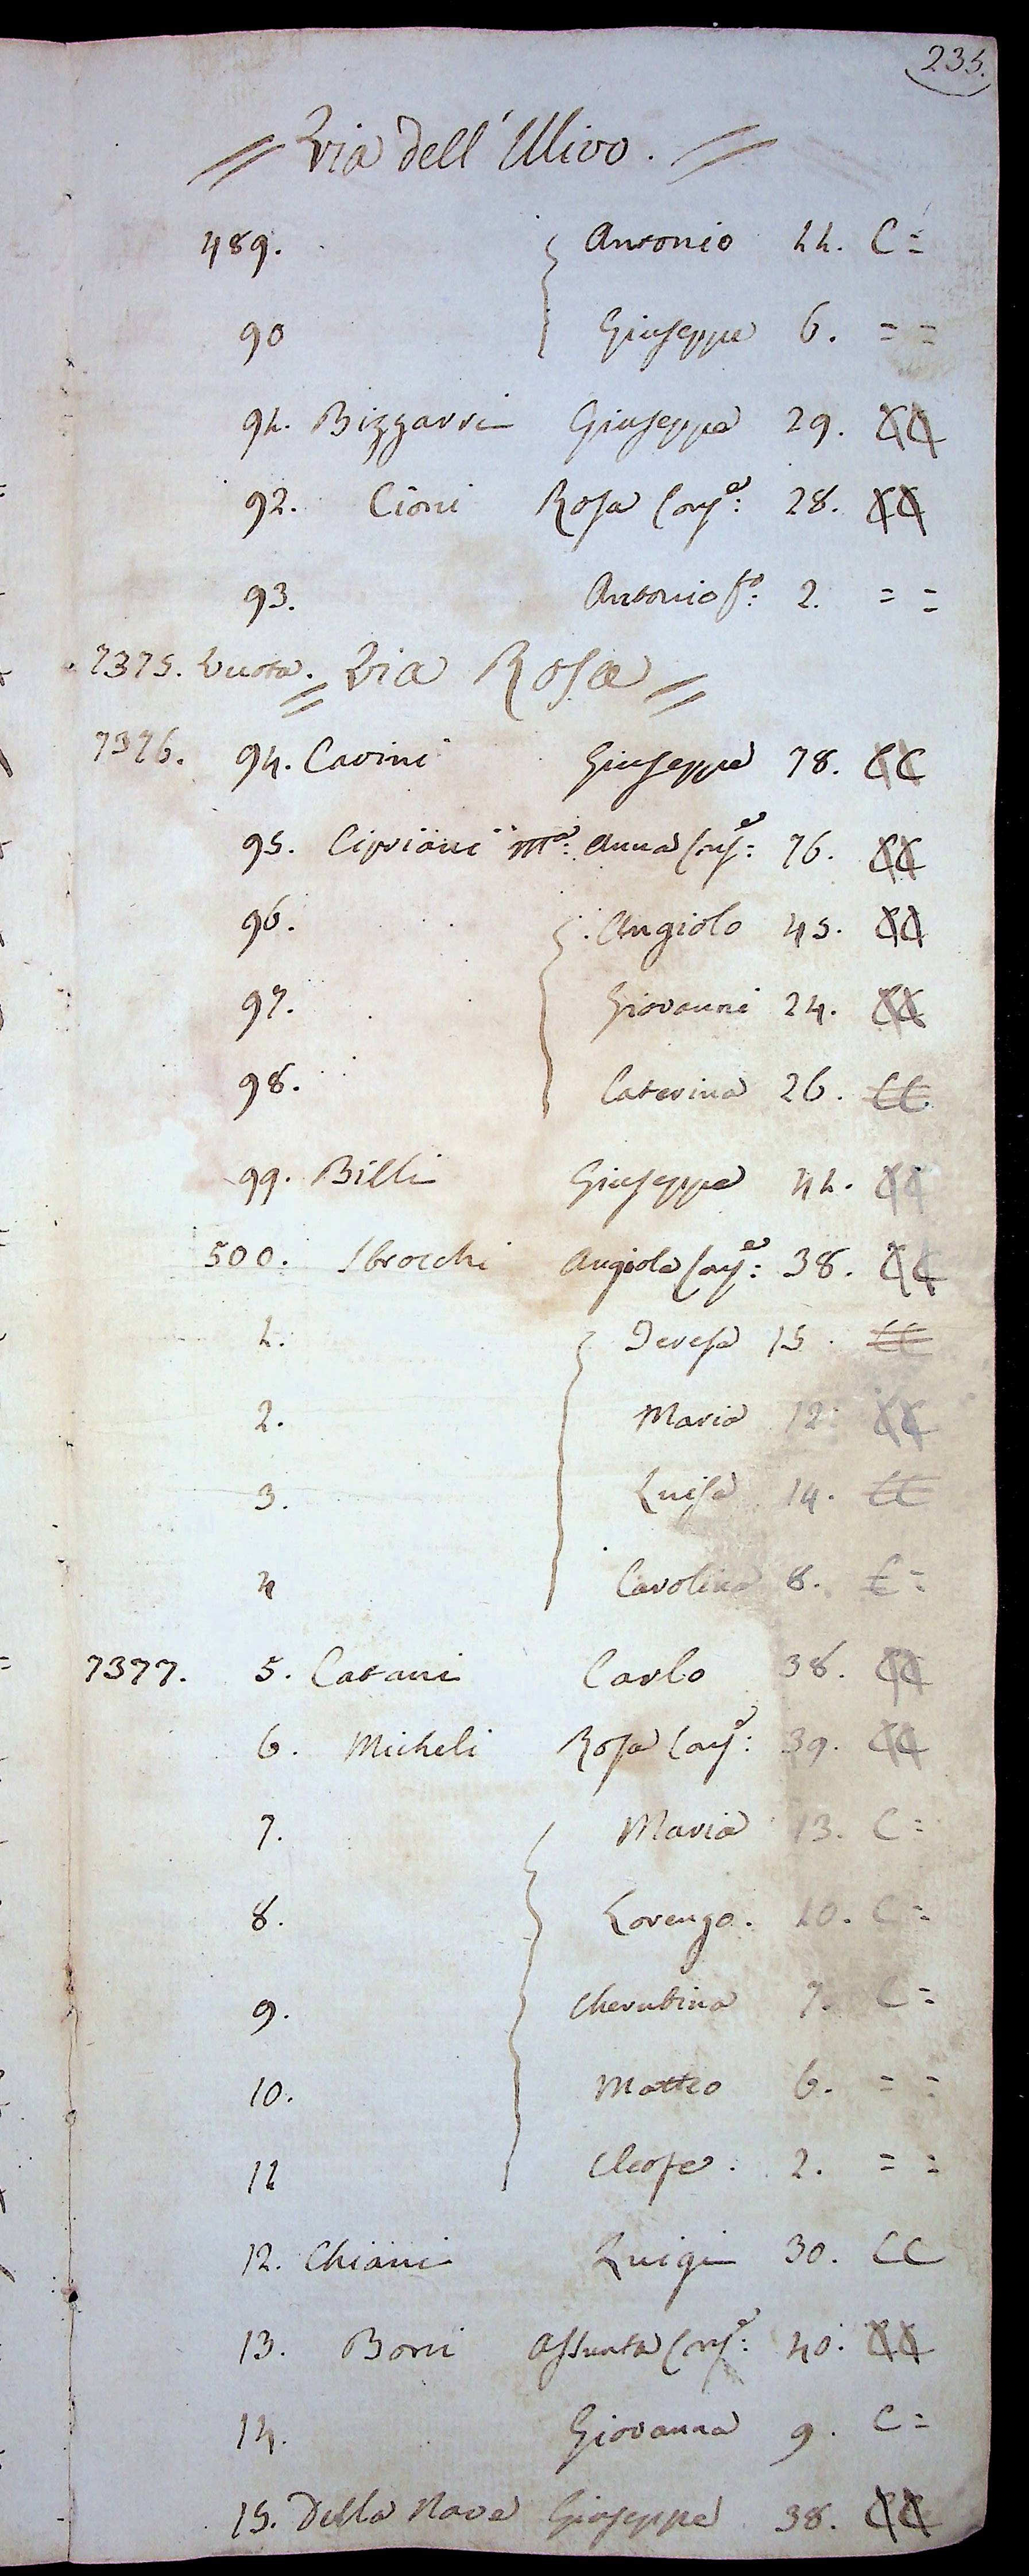 235.
Via dell' Ulivo.
489. Antonio 11. C =
90 Giuseppe 6. = =
91. Bizzarri Giuseppe 29. CC
92. Cioni Rosa Conj.e: 28. CC
93. Antonio fo: 2. = =
7375. Vuota. Via Rosa
7376. 94. Cavini Giuseppe 78. CC
95. Cipriani Ma: Anna Conj.e: 76. CC
96. Angiolo 45. CC
97. Giovanni 24. CC
98. Caterina 26. CC
99. Billi Giuseppe 41. CC
500. Sbrocchi Angiola Conj.e: 38. CC
1. Teresa 15. CC
2. Maria 12: CC
3. Luisa 14. CC
4 Carolina 8. C =
7377. 5. Catani Carlo 38. CC
6. Micheli Rosa Conj.e: 39. CC
7. Maria 13. C =
8. Lorenzo. 10. C =
9. Cherubina 7. C =
10. Matteo 6. = =
11 Cleofe. 2. = =
12. Chiani Luigi 30. CC
13. Boni Assunta Conj.e: 40. CC
14. Giovanna 9. C =
15. Della Nave Giuseppe 38. CC